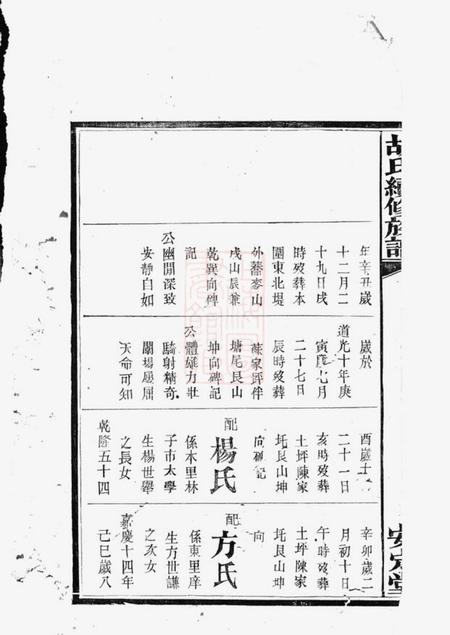 胡氏續修族譜
年辛丑歲
十二月二
十九日戌
時歿葬本
圍東北堤
外蕎麥山
戌山辰兼
乾巽向碑
記
公幽閒深致
安靜自如
歲於
道光十年庚
寅歲七月
二十七日
辰時歿葬
蘇家坪伴
塘尾艮山
坤向碑記
公體雄力壯
騎射精奇
闈場屢屈
天命可知
酉歲十
二十一日
亥時歿葬
土坪陳家
圫艮山坤
向碑記
配楊氏
係本里林
子市太學
生楊世舉
之長女
乾隆五十四
辛卯歲二
月初十日
午時歿葬
土坪陳家
圫艮山坤
向
配方氏
係東里庠
生方世謙
之次女
嘉慶十四年
己巳歲八
安定堂